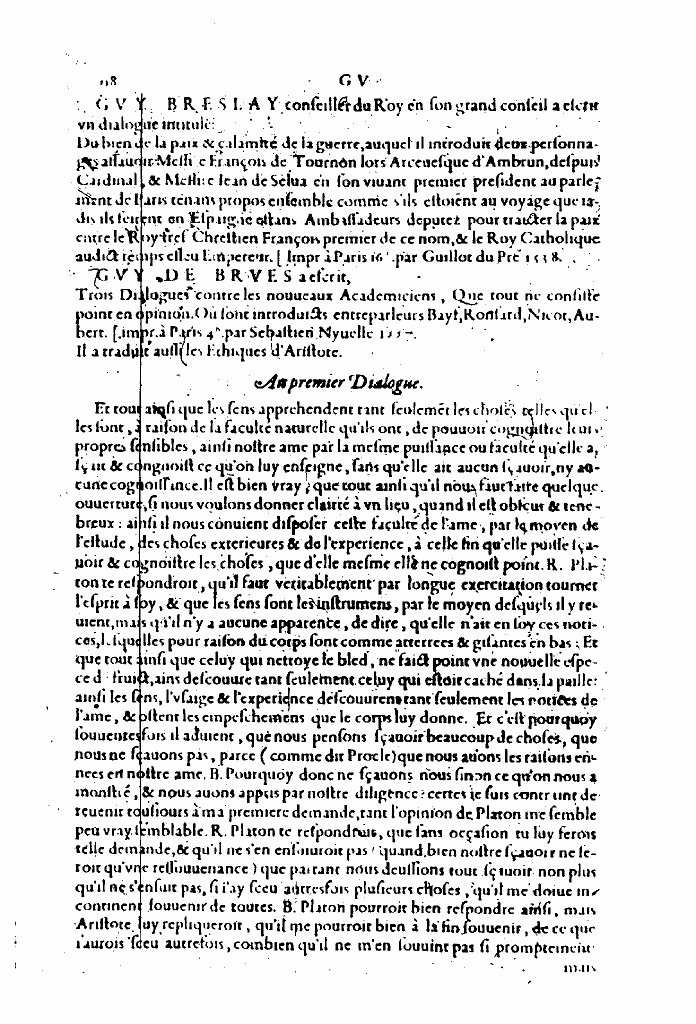 G V
G V Y BRESLAY conseiller du Roy en son grand conseil a escrit
vn dialogue intitulé:
Du bien de la paix & calamité de la guerre, auquel il introduit deux personna-
ges assauoir Messire François de Tournon lors Arceuesque d'Ambrun, despuis
Cardinal, & Messire Iean de Selua en son viuant premier president au parle-
ment de Paris tenans propos ensemble comme s'ils estoient au voyage que ia-
dis ils feirent en Espaigne estans Ambassadeurs deputez pour traicter la paix
entre le Roy tres Chrestien François premier de ce nom, & le Roy Catholique
audict temps esleu Empereur. [Impr à Paris 16° par Guillot du Pré 1538.
GVY DE BRVES a escrit,
Trois Dialogues contre les nouueaux Academiciens, Que tout ne consiste
point en opinion. Où sont introduicts entreparleurs Bayf, Ronsard, Nicot, Au-
bert. [impr. à Paris 4° par Sebastien Nyuelle 1557.
Il a traduit aussi les Ethiques d'Aristote.
Au premier Dialogue.
Et tout ainsi que les sens apprehendent tant seulemēt les choses telles qu'el-
les sont, à raison de la faculté naturelle qu'ils ont, de pouuoir cognoistre leurs
propres sensibles, ainsi nostre ame par la mesme puissance ou faculté qu'elle a,
sçait & congnoist ce qu'on luy enseigne, sans qu'elle ait aucun sçauoir, ny au-
cune cognoissance. Il est bien vray, que tout ainsi qu'il nous faut faire quelque
ouuerture, si nous voulons donner clairté à vn lieu, quand il est obscur & tene-
breux: ainsi il nous conuient disposer ceste faculté de l'ame, par le moyen de
l'estude, des choses exterieures & de l'experience, à celle fin qu'elle puisse sça-
uoir & cognoistre les choses, que d'elle mesme elle ne cognoist point. R. Pla-
ton te respondroit, qu'il faut veritablement par longue exercitation tourner
l'esprit à soy, & que les sens sont les instrumens, par le moyen desquels il y re-
uient, mais qu'il n'y a aucune apparence, de dire, qu'elle n'ait en soy ces noti-
ces, lesquelles pour raison du corps sont comme atterrees & gisantes en bas: Et
que tout ainsi que celuy qui nettoye le bled, ne faict point vne nouuelle espe-
ce de fruict, ains descouure tant seulement celuy qui estoit caché dans la paille:
ainsi les sens, l'vsaige & l'experience descouurent tant seulement les notices de
l'ame, & ostent les empeschemens que le corps luy donne. Et c'est pourquoy
souuentesfois il aduient, que nous pensons sçauoir beaucoup de choses, que
nous ne sçauons pas, parce (comme dit Procle) que nous auons les raisons en-
nees en nostre ame. B. Pourquoy donc ne sçauons nous sinon ce qu'on nous a
monstré, & nous auons appris par nostre diligence: certes ie suis contraint de
reuenir tousiours à ma premiere demande, tant l'opinion de Platon me semble
peu vray semblable. R. Platon te respondroit, que sans occasion tu luy ferois
telle demande, & qu'il ne s'en ensuiuroit pas (quand bien nostre sçauoir ne se-
roit qu'vne ressouuenance) que partant nous deussions tout sçauoir non plus
qu'il ne s'ensuit pas, si i'ay sceu autresfois plusieurs choses, qu'il me doiue in-
continent souuenir de toutes. B. Platon pourroit bien respondre ainsi, mais
Aristote luy repliqueroit, qu'il me pourroit bien à la fin souuenir, de ce que
i'aurois sceu autrefois, combien qu'il ne m'en souuint pas si promptement